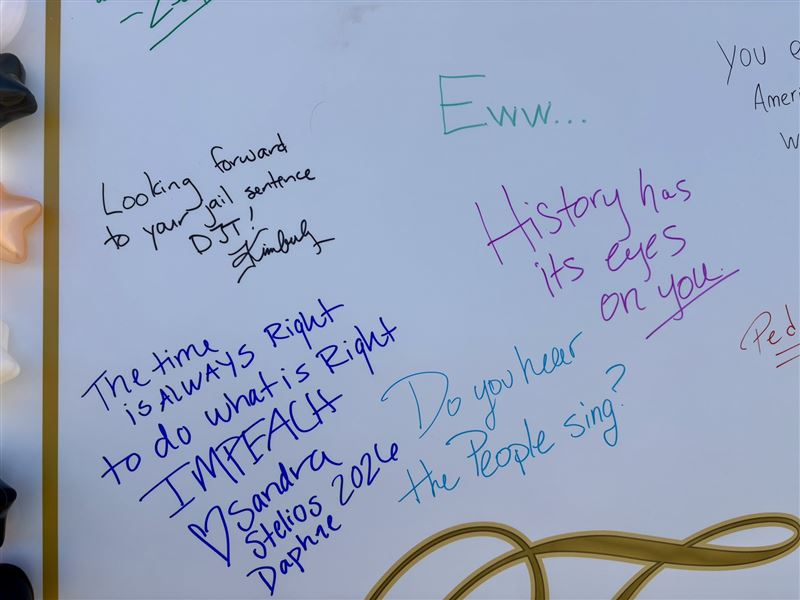 Eww...
You
Ameri
Looking forward
to your jail sentence
DJT!
Kimberly
History has
its eyes
on you.
Ped
The time
is ALWAYS Right
to do what is Right
IMPEACH
♡ Sandra
Stelios 2026
Daphne
Do you hear
the People sing?